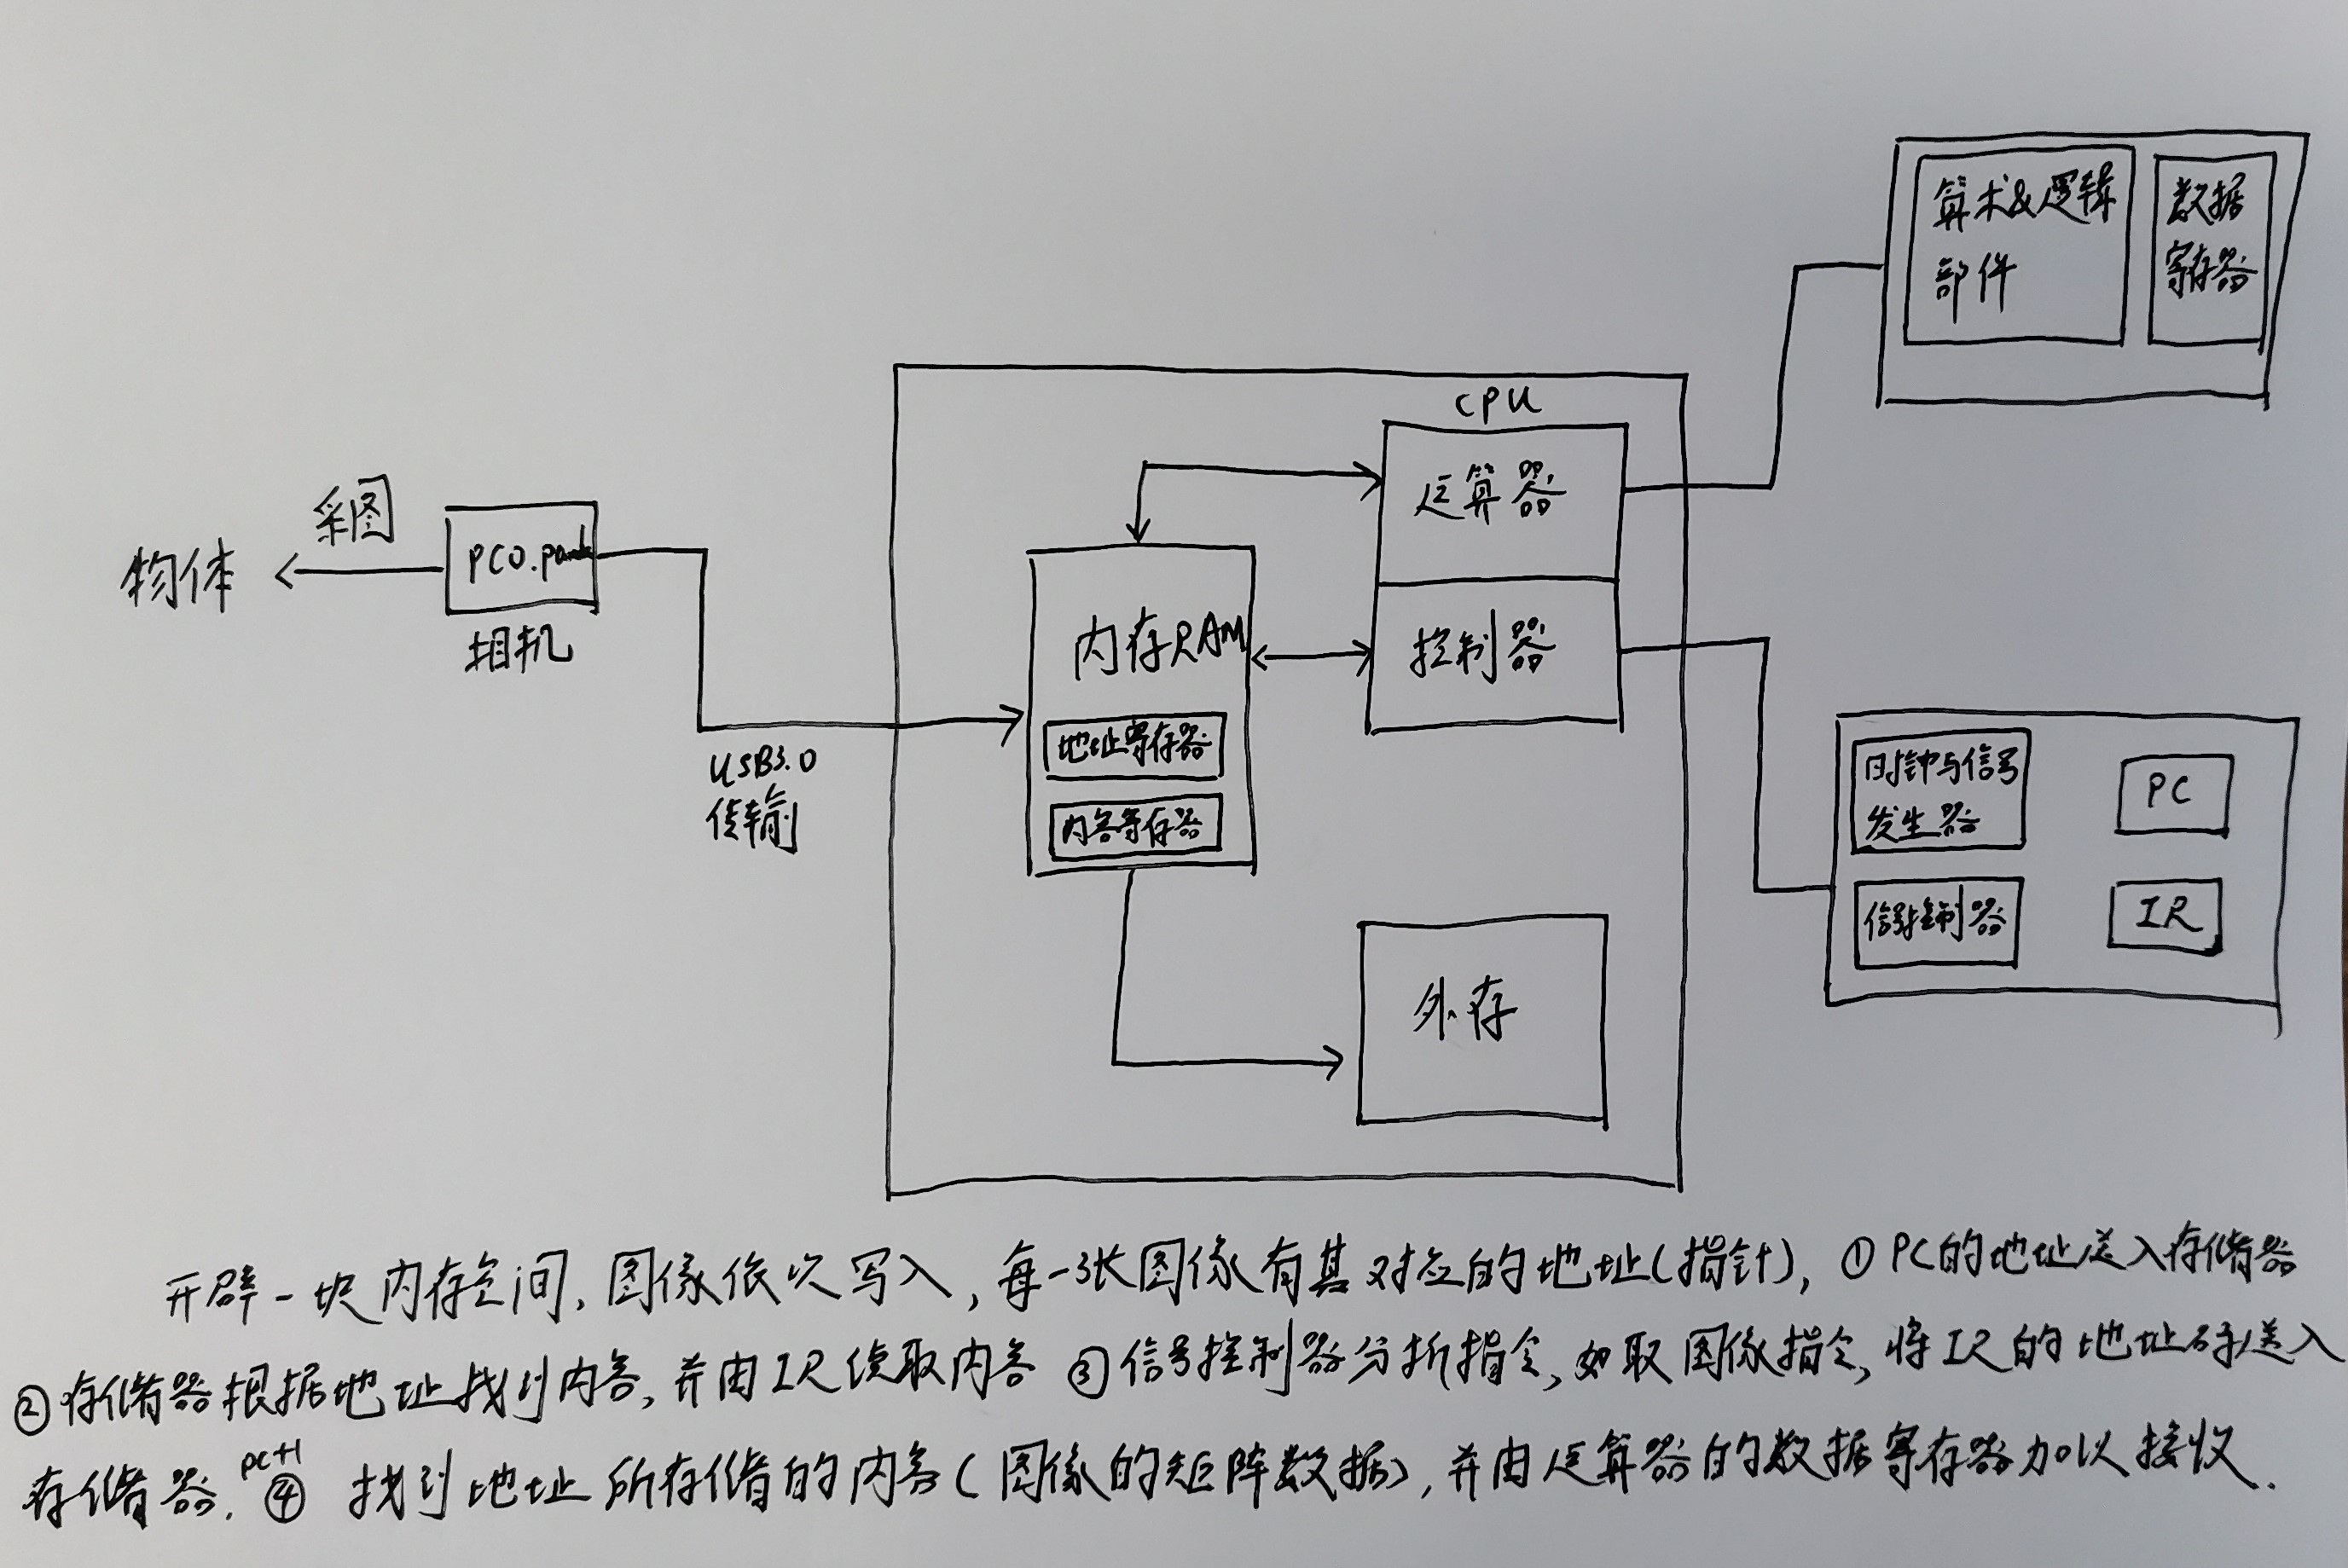 算术&逻辑
部件
数据
寄存器
CPU
运算器
采图
物体
PCO.panda
相机
内存RAM
控制器
地址寄存器
内容寄存器
USB3.0
传输
时钟与信号
发生器
PC
信号控制器
IR
外存
开辟一块内存空间,图像依次写入,每一张图像有其对应的地址(指针),①PC的地址送入存储器
②存储器根据地址找到内容,并由IR读取内容 ③信号控制器分析指令,如取图像指令,将IR的地址码送入
存储器. pc+1 ④ 找到地址所存储的内容(图像的矩阵数据),并由运算器的数据寄存器加以接收.